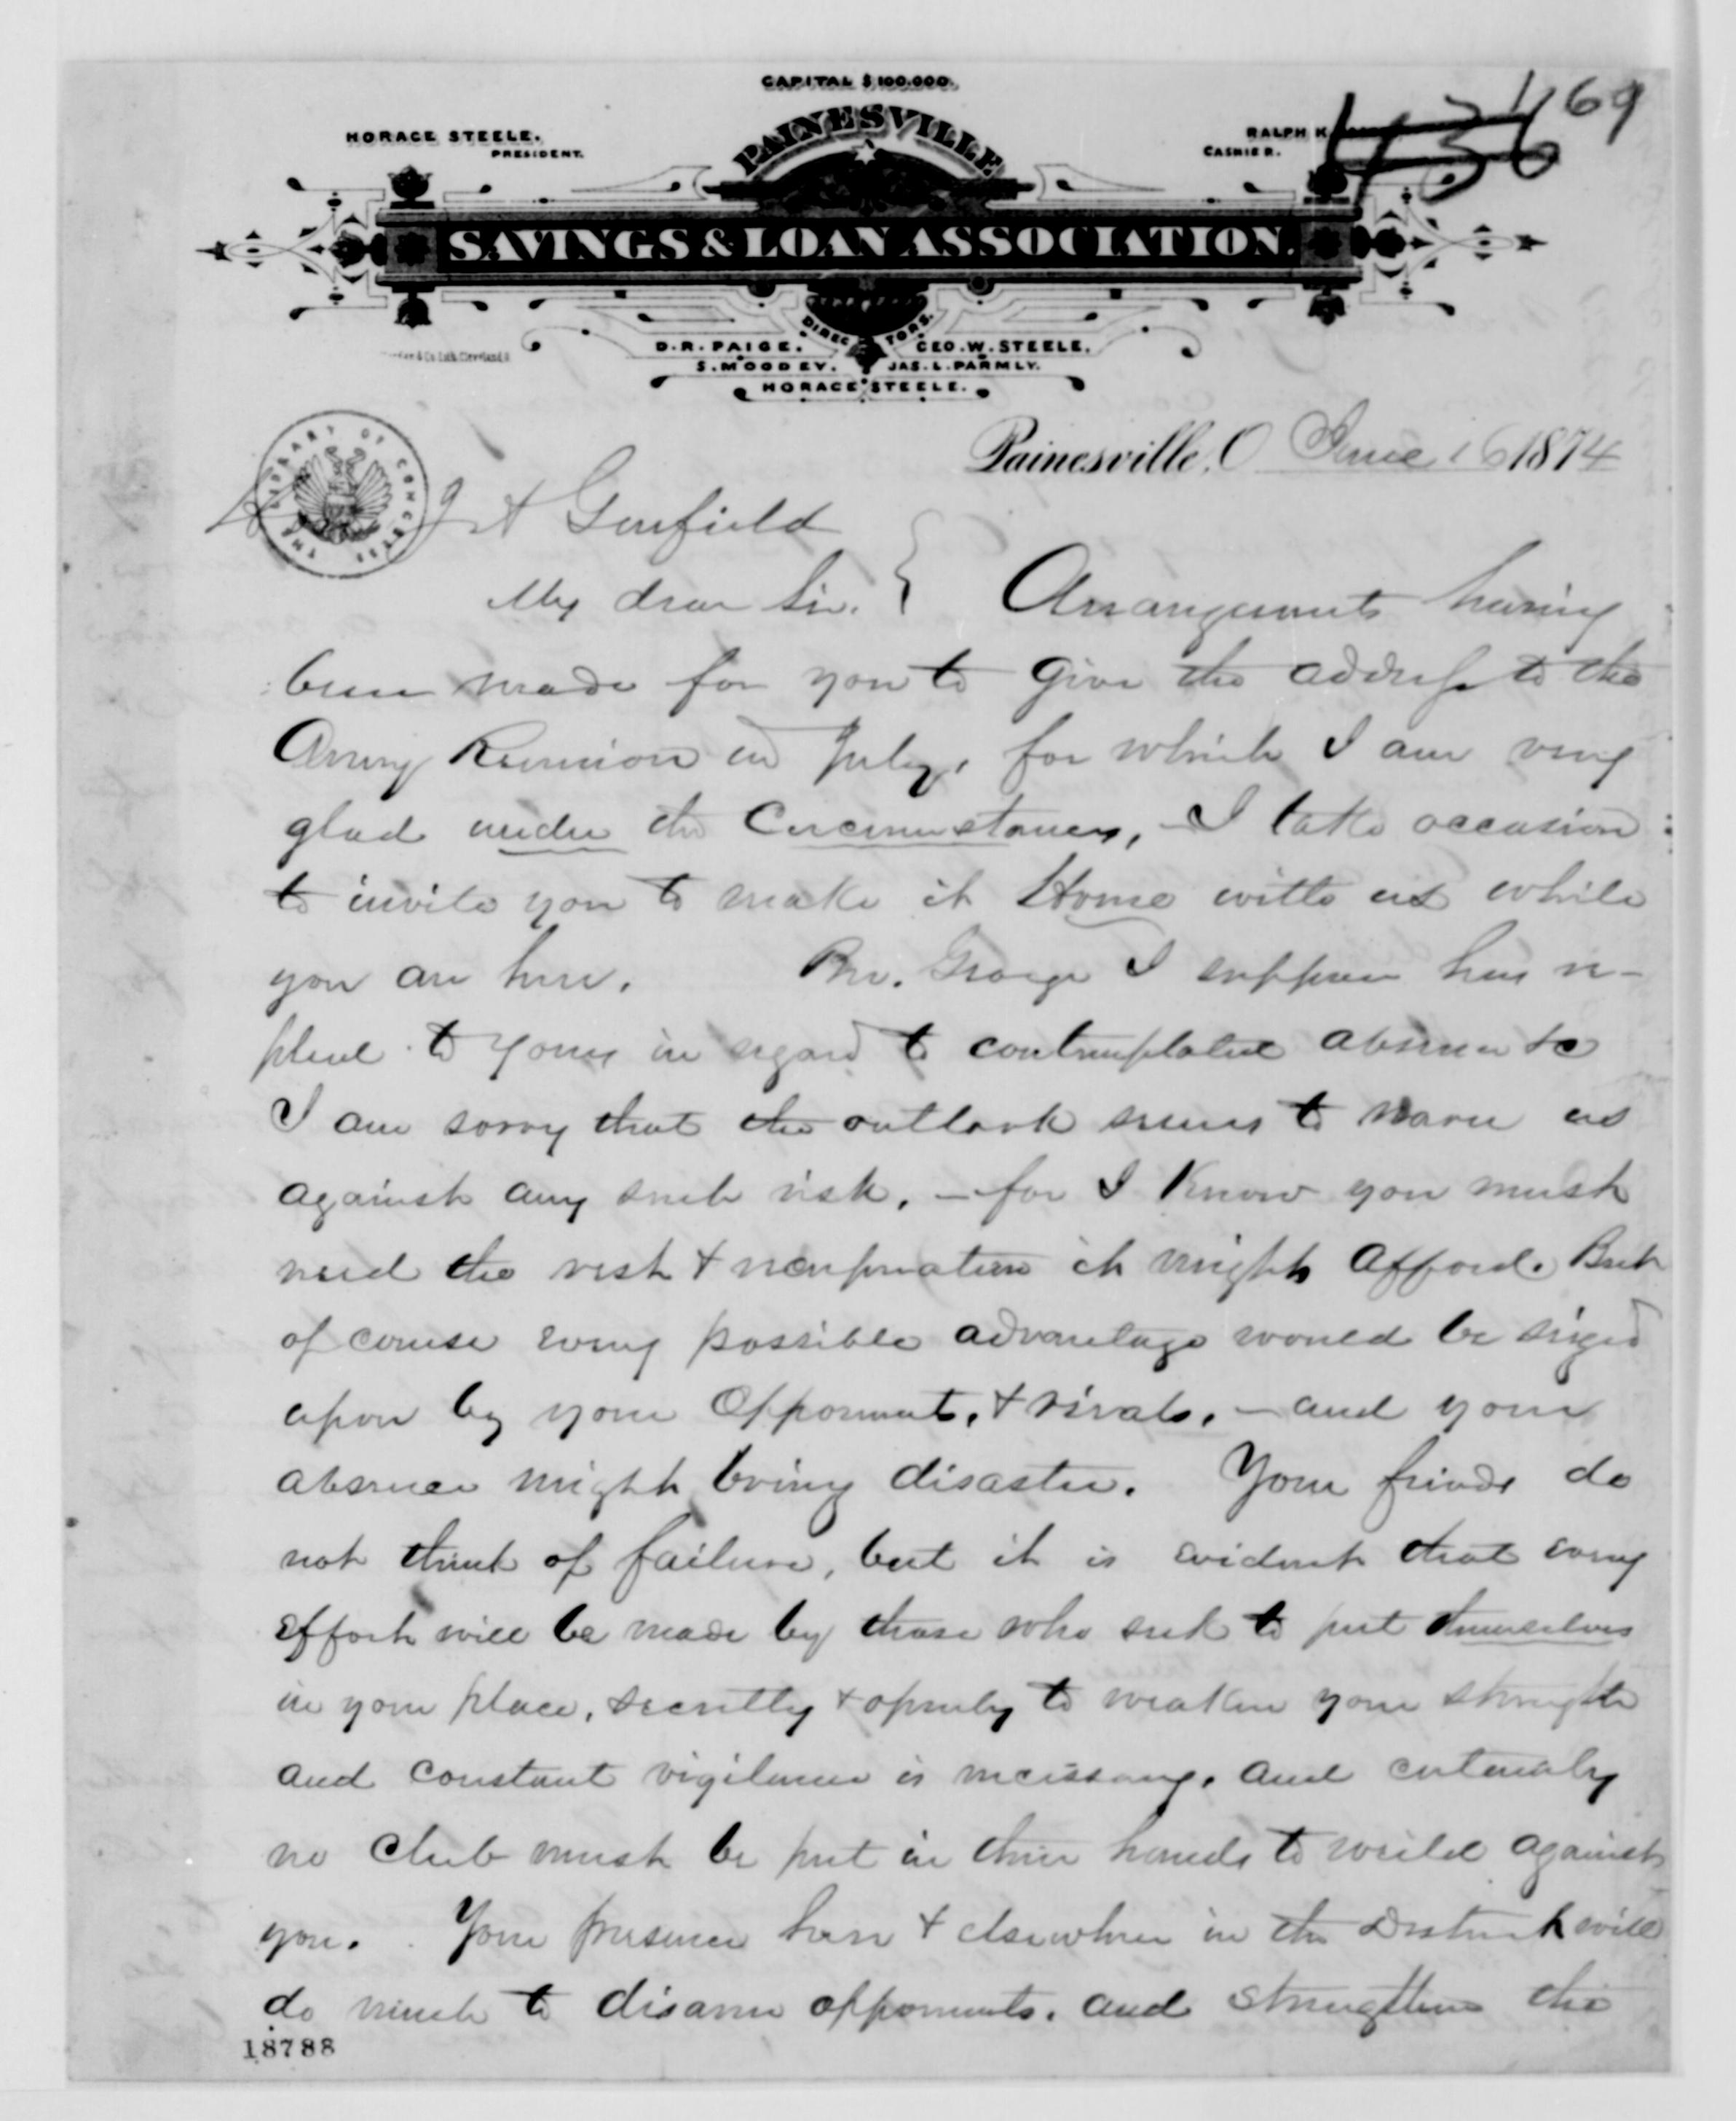 CAPITAL $100.000.
PAINESVILLE
HORACE STEELE.
PRESIDENT.
RALPH K.
CASHIER.
69
SAVINGS & LOAN ASSOCIATION.
DIRECTORS.
D.R. PAIGE. GEO. W. STEELE.
S. MOODEY. JAS. L. PARMLY.
HORACE STEELE.
Painesville, O June 16 1874
THE LIBRARY OF CONGRESS
J A Garfield
My dear Sir. Arrangements having
been made for you to give the address to the
Army Reunion in July, for which I am very
glad under the Circumstances, - I take occasion
to invite you to make it Home with us while
you are here. Bro. George I suppose has re-
plied to yours in regard to contemplated absence &c
I am sorry that the outlook seems to warn us
against any such risk. - for I know you must
need the rest & recuperation it might afford. But
of course every possible advantage would be siezed
upon by your Opponents, & rivals, - and your
absence might bring disaster. Your friends do
not think of failure, but it is evident that every
effort will be made by those who seek to put themselves
in your place, secretly & openly to weaken your strength
and constant vigilance is necessary. and certainly
no Club must be put in their hands to weild against
you. Your presence here & elsewhere in the District will
do much to disarm opponents. and strengthen the
18788